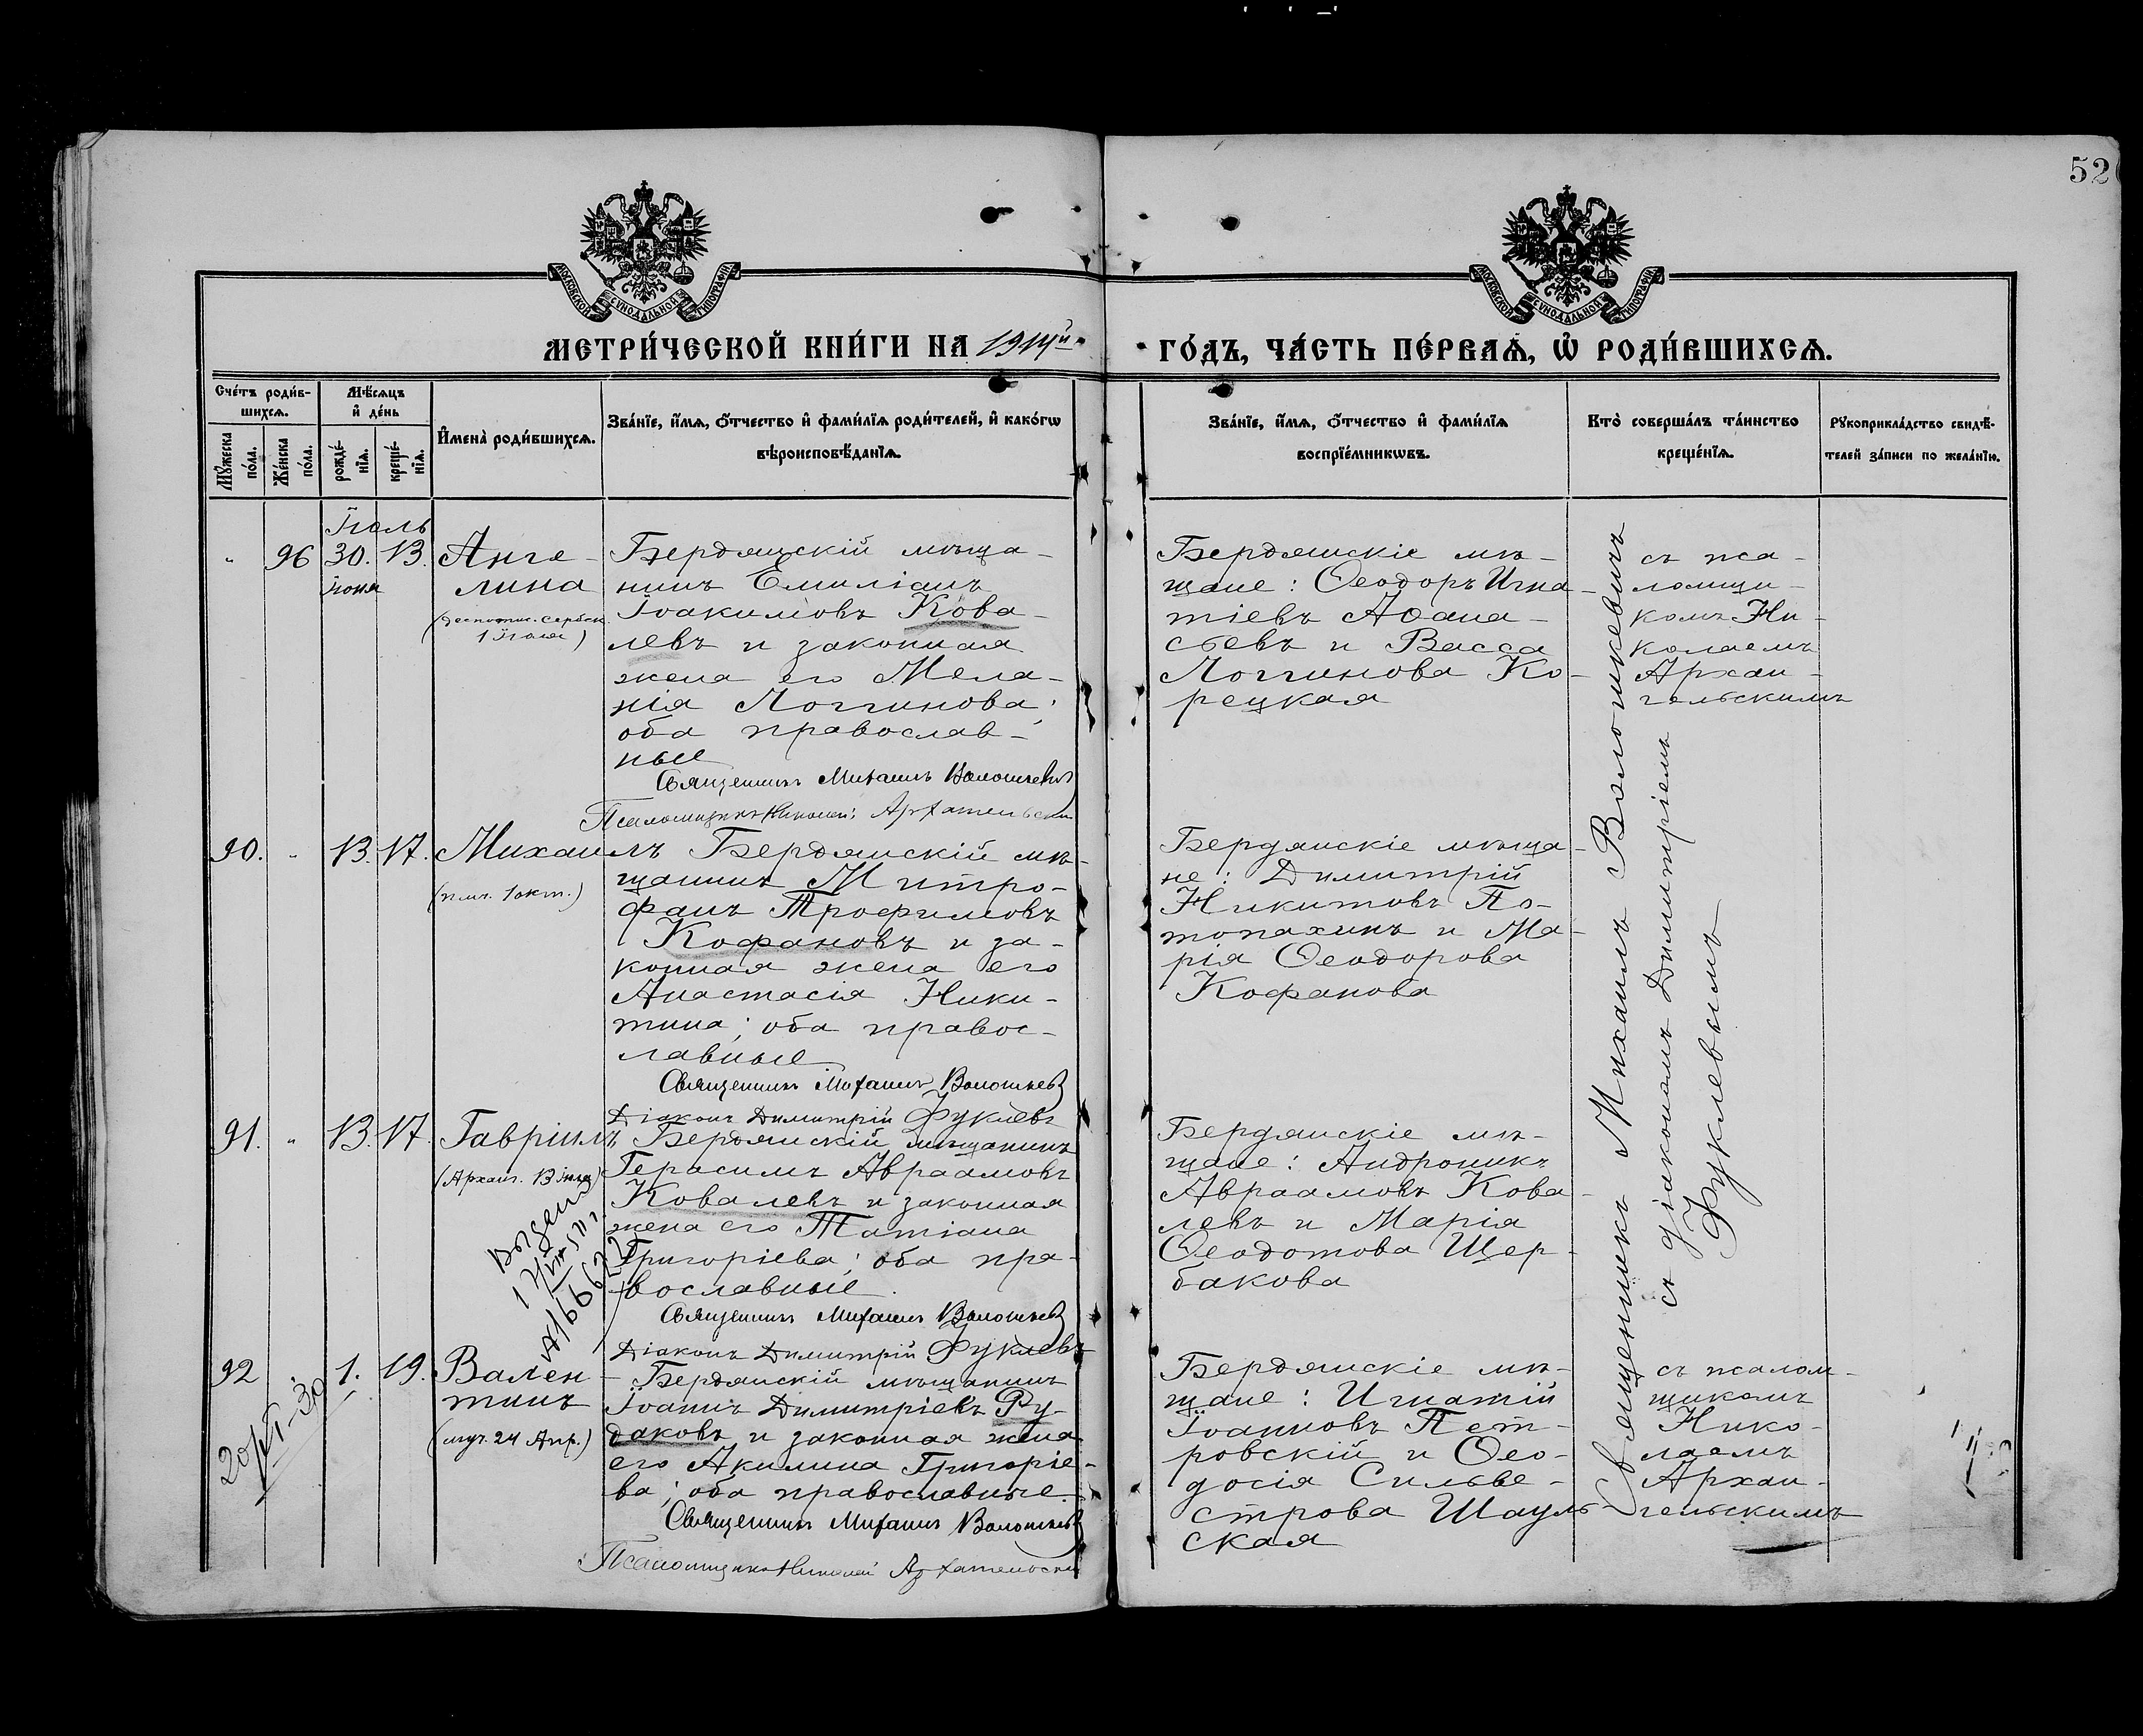 52
МОСКОВСКОЙ СѴНОДАЛЬНОЙ ТИПОГРАФІИ
МОСКОВСКОЙ СѴНОДАЛЬНОЙ ТИПОГРАФІИ
МЕТРИ́ЧЕСКОЙ КНИ́ГИ НА 1914й
ГО́ДЪ, ЧА́СТЬ ПЕ́РВАѦ, Ѡ҆ РОДИ́ВШИХСѦ.
Сче́тъ роди́в-
шихсѧ.
Мѣ́сѧцъ
и҆ де́нь
Мꙋ́жеска
по́ла.
Же́нска
по́ла.
рожде́-
нїѧ.
креще́-
нїѧ.
И҆мена̀ роди́вшихсѧ.
Зва́нїе, и҆́мѧ, ѻ҆́тчество и҆ фами́лїѧ роди́телей, и҆ како́гѡ
вѣроисповѣ́данїѧ.
Зва́нїе, и҆́мѧ, ѻ҆́тчество и҆ фами́лїѧ
воспрїе́мникѡвъ.
Кто̀ соверша́лъ та́инство
креще́нїѧ.
Рꙋкоприкла́дство свидѣ́-
телей за́писи по жела́нїю.
Іюль
" 96 30. 13.
іюня
Анге-
лина
(деспотис. сербск.
1 Іюля)
Бердянскій мѣща-
нинъ Емиліанъ
Іоакимовъ Кова-
левъ и законная
жена его Мела-
нія Логгинова;
оба православ-
ные
Священникъ Михаилъ Волошкевич
Псаломщикъ Николай Архангельскій
Бердянскіе мѣ-
щане: Ѳеодоръ Игна-
тіевъ Аѳана-
сьевъ и Васса
Логгинова Ко-
рецкая
съ пса-
ломщи-
комъ Ни-
колаемъ
Архан-
гельскимъ
90. " 13. 17. Михаилъ
(пмч. 1 окт.)
Бердянскій мѣ-
щанинъ Митро-
фанъ Трофимовъ
Кофановъ и за-
конная жена его
Анастасія Ники-
тина; оба правос-
лавные
Священникъ Михаилъ Волошкевич
Діаконъ Димитрій Фуклевъ
Бердянскіе мѣща-
не: Димитрій
Никитовъ По-
топахинъ и Ма-
рія Ѳеодорова
Кофанова
Священникъ Михаилъ Волошкевичъ
съ діакономъ Димитріемъ
Фуклевымъ
91. " 13. 17. Гавріилъ
(Архан. 13 іюля)
Бердянскій мѣщанинъ
Герасимъ Авраамовъ
Ковалевъ и законная
жена его Татіана
Григоріева; оба пра-
вославные.
Священникъ Михаилъ Волошкевич
Діаконъ Димитрій Фуклевъ
Бердянскіе мѣ-
щане: Андроникъ
Авраамовъ Кова-
левъ и Марія
Ѳеодотова Щер-
бакова
92 1. 19. Вален-
тинъ
(муч. 24 Апр.)
Бердянскій мѣщанинъ
Іоаннъ Димитріевъ Ру-
даковъ и законная жена
его Акилина Григоріе-
ва; оба православные.
Священникъ Михаилъ Волошкевич
Псаломщикъ Николай Архангельскій
Бердянскіе мѣ-
щане: Игнатій
Іоанновъ Пет-
ровскій и Ѳео-
досія Сильве-
строва Шауль-
ская
съ псалом-
щикомъ
Нико-
лаемъ
Архан-
гельскимъ